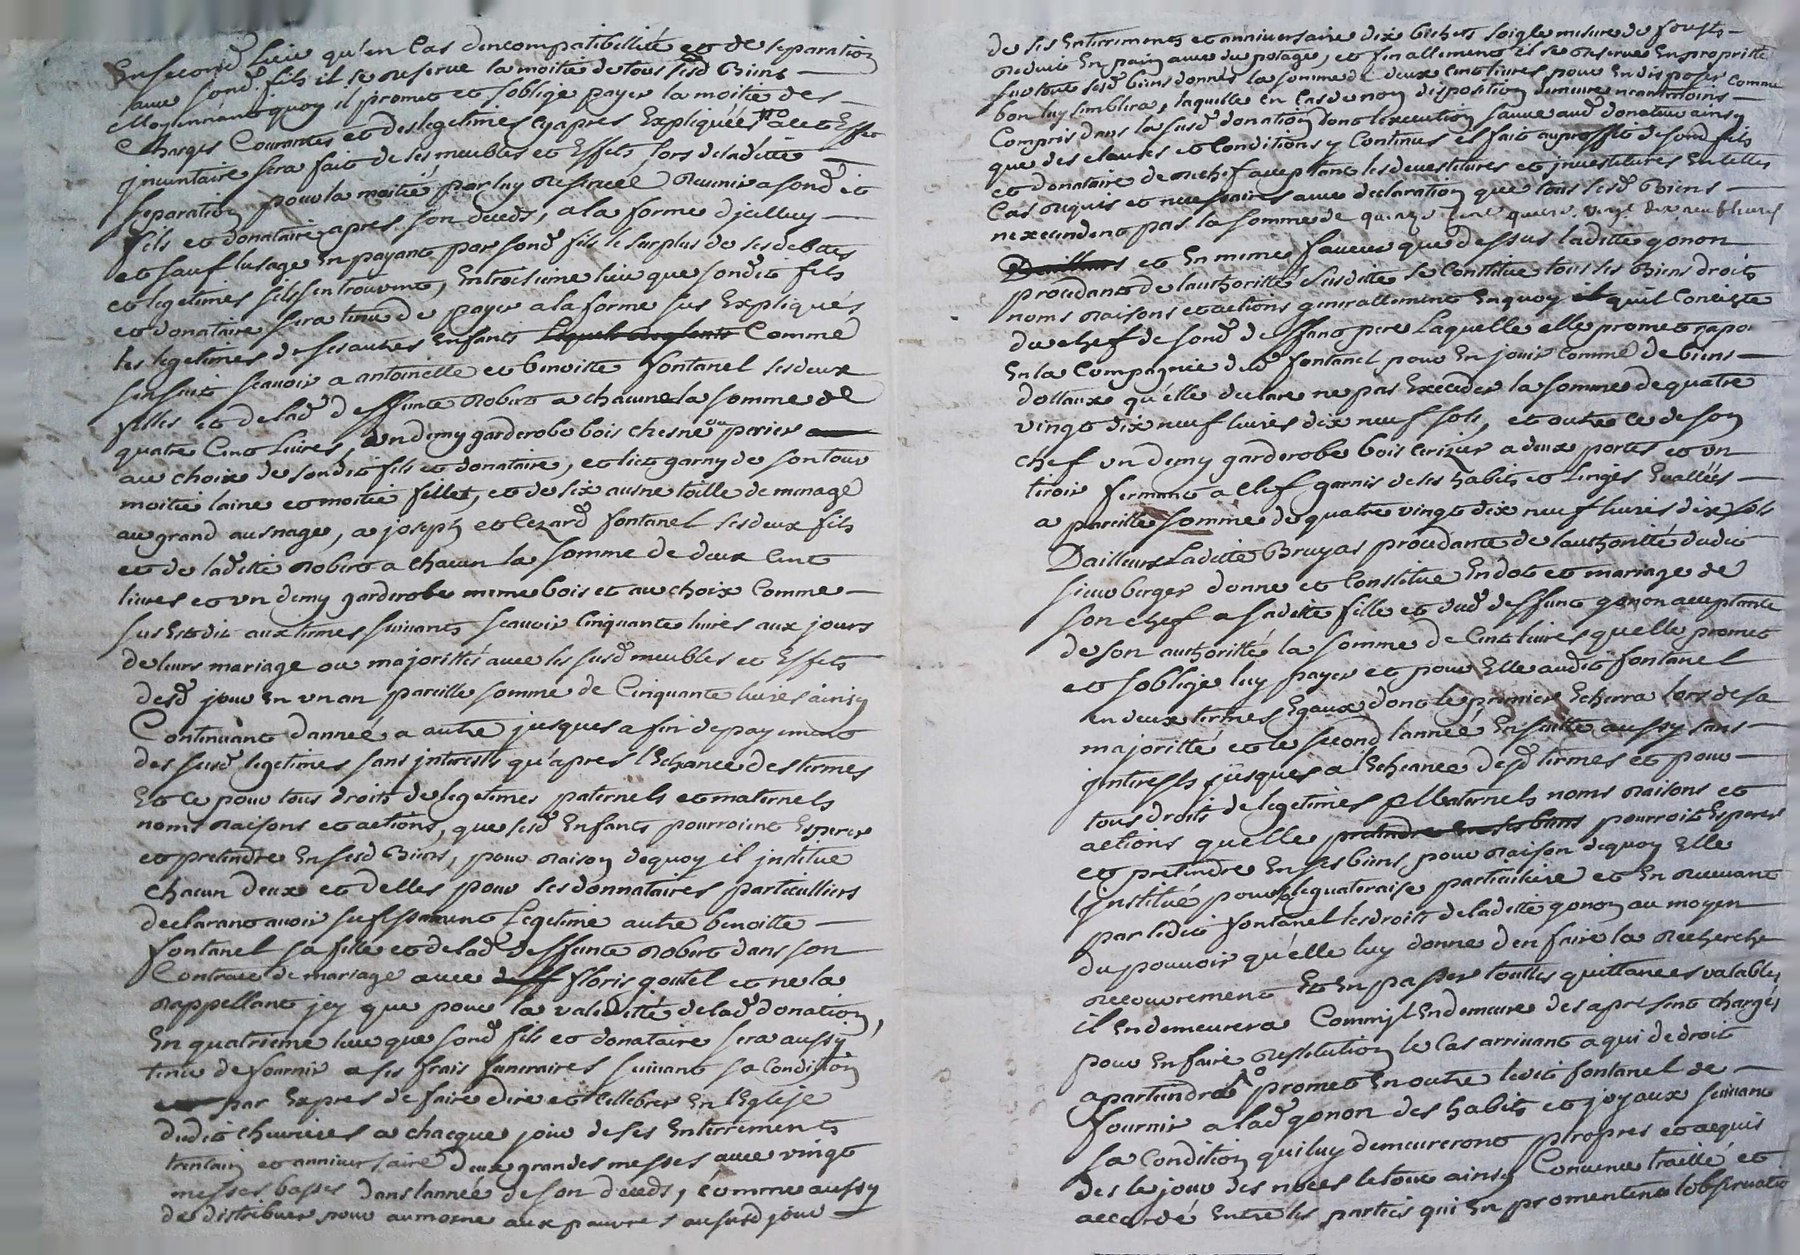 En second lieu qu'en Cas d'incompatibillité et de separation
avec sond. fils il se reserve la moitié de tous sesd. Biens
Moyennant quoy il promet et soblige payer la moitié des
Charges Courantes et des legetimes cyapres Expliquées a cet Effet
jnventaire sera fait de ses meubles et Effets lors de laditte
separation pour la moitié par luy reservée Revenir a sondit
fils et donataire apres son deceds, a la forme d'jcelluy
et sauf lusage En payant par sond. fils le surplus de ses debtes
et legetimes sils sen trouvent, En troisieme lieu que sondit fils
et donataire sera tenu de payer a la forme sus Expliqués
les legetimes de ses autres Enfants Comme
sensuit scavoir a antoinette et benoitte fontanel ses deux
filles et de lad. deffunte Robert a chacune la somme de
quatre Cent Livres, un demy garderobe bois chesne ou perier
au choix de sondit fils et donataire, et lict garny de son tour
moitié laine et moitié fillet, et de six ausne toille de menage
au grand ausnage, a joseph et Cezard fontanel ses deux fils
et de laditte Robert a chacun la somme de deux Cent
livres et un demy garderobe meme bois et au choix Comme
sus Est dit aux termes suivants scavoir Cinquante livres aux jours
de leurs mariage ou majorittés avec les susd. meubles et Effets
desd. jour en un an pareille somme de Cinquante livres ainsy
Continuant d'année a autre jusques a fin de payement
des susd. legetimes sans jnterests qu'apres l'Echance des termes
Et ce pour tous droits de legetimes paternels et maternels
noms raisons et actions, que sesd. Enfants pourroient Esperer
et pretendre En sesd. Biens, pour raison dequoy il jnstitue
chacun deux et delles pour ses donnataires particulliers
declarant avoir suffisament Legetimé autre benoitte
fontanel sa fille et de lad. deffunte Robert dans son
Contract de mariage avec floris goutel et ne la
rappellant jcy que pour la validitté de lad. donation,
En quatrieme lieu que sond. fils et donataire sera aussy
tenu de fournir a ses frais funeraires suivant sa Condition
par Expres de faire dire et cellebrer En l'Eglise
dudit chevrieres a chacque jour de ses Enterrements
trentain et anniversaire deux grandes messes avec vingt
messes basses dans lannée de son deceds, comme aussy
de distribuer pour aumosne aux pauvres aususd. jour
de ses Enterrements et anniversaire dix bichets soigle mesure de
reduit En pain avec du potage, et finallement il se reserve En propritté
sur tout sesd. biens donnés la somme de deux cent livres pour En disposer comme
bon luy semblera, laquelle En Cas de non disposition demeure neantmoins
Compris dans la susd. donation dont lexecution sauve aud. donateur ainsy
que des clauses et Conditions y Continus Est fait au proffit de sond. fils
et donataire de rechef acceptant les devestitures et jnvestitures En telles
Cas requis et necessaires avec declaration que tous sesd. Biens
nexcendent pas la somme de quinze Cent quatre vingt dix neuf livres
et En meme faveur que dessus laditte gonon
procedant de lauthoritté susditte se Constitue tous ses Biens droits
noms raisons et actions generallement En quoy quil Conciste
du chef de sond. deffunt pere Laquelle elle promet
En la Compagnie dud. fontanel pour En jouir comme de biens
dottaux qu'elle declare ne pas Exceder la somme de quatre
vingt dix neuf livres dix neuf sols, et outre ce de son
chef un demy garderobe bois cerizier a deux portes et un
tiroir fermant a Clef garnis de ses habits et Linges Evallées
a pareille somme de quatre vingt dix neuf livres dix sols
D'ailleurs Laditte Bruyas procedante de lauthoritté dudit
sieur berger donne et Constitue En dot et mariage de
son chef a saditte fille et dud. deffunt gonon acceptante
de son authoritté la somme de Cent livres quelle promet
et soblige luy payer et pour Elle audit fontanel
en deux termes Egaux dont le premier Echerra lors de sa
majoritté et le second lannée En suitte aussy sans
jnterests jusques a l'Echeance desd. termes et pour
tous droits de legetimes Maternels noms raisons et
actions quelle pretendre En ses biens pourroit Esperer
et pretendre En ses biens pour raison dequoy Elle
l'jnstitue particuliere et En recevant
par ledit fontanel les droits de laditte gonon au moyen
du pouvoir qu'elle luy donne d'en faire la recherche
recouvrement Et En passer touttes quittances valables
il En demeurera Comm'jl En demeure des apresent chargés
pour En faire restitution le Cas arrivant a qui de droit
apartiendra promet En outre ledit fontanel de
fournir a lad. gonon des habits et joyaux suivant
sa Condition qui luy demeureront propres et acquis
des le jour des noces le tout ainsy Convenu traitté et
accordé Entre les parties qui En promettent lobservation